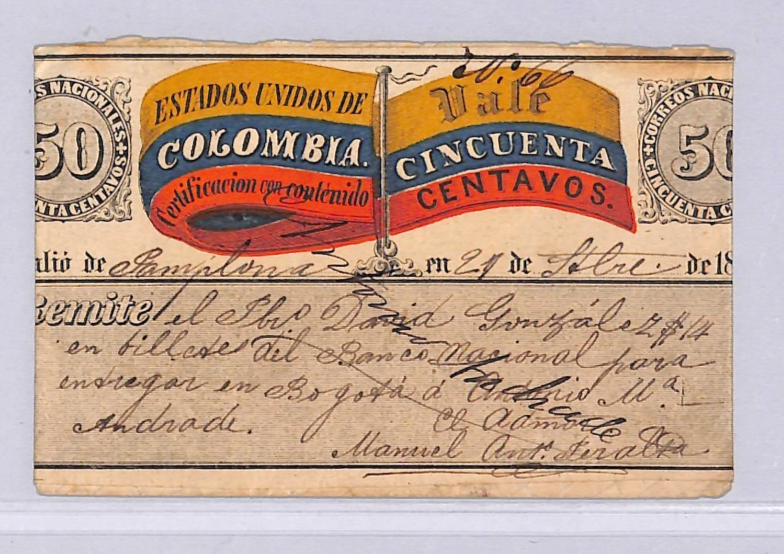 No. 66
ESTADOS UNIDOS DE
COLOMBIA.
Certificacion con contenido
Vale
CINCUENTA
CENTAVOS.
S NACIONALES
50
NTA CENTAVOS
CORREOS NACI
50
CINCUENTA C
alió de Pamplona en 21 de Stbre. de 18
Remite el Pbro David González $14
en billetes del Banco Nacional para
entregar en Bogotá á Antonio Ma.
Andrade. El Admor
Manuel Anto. Peralta